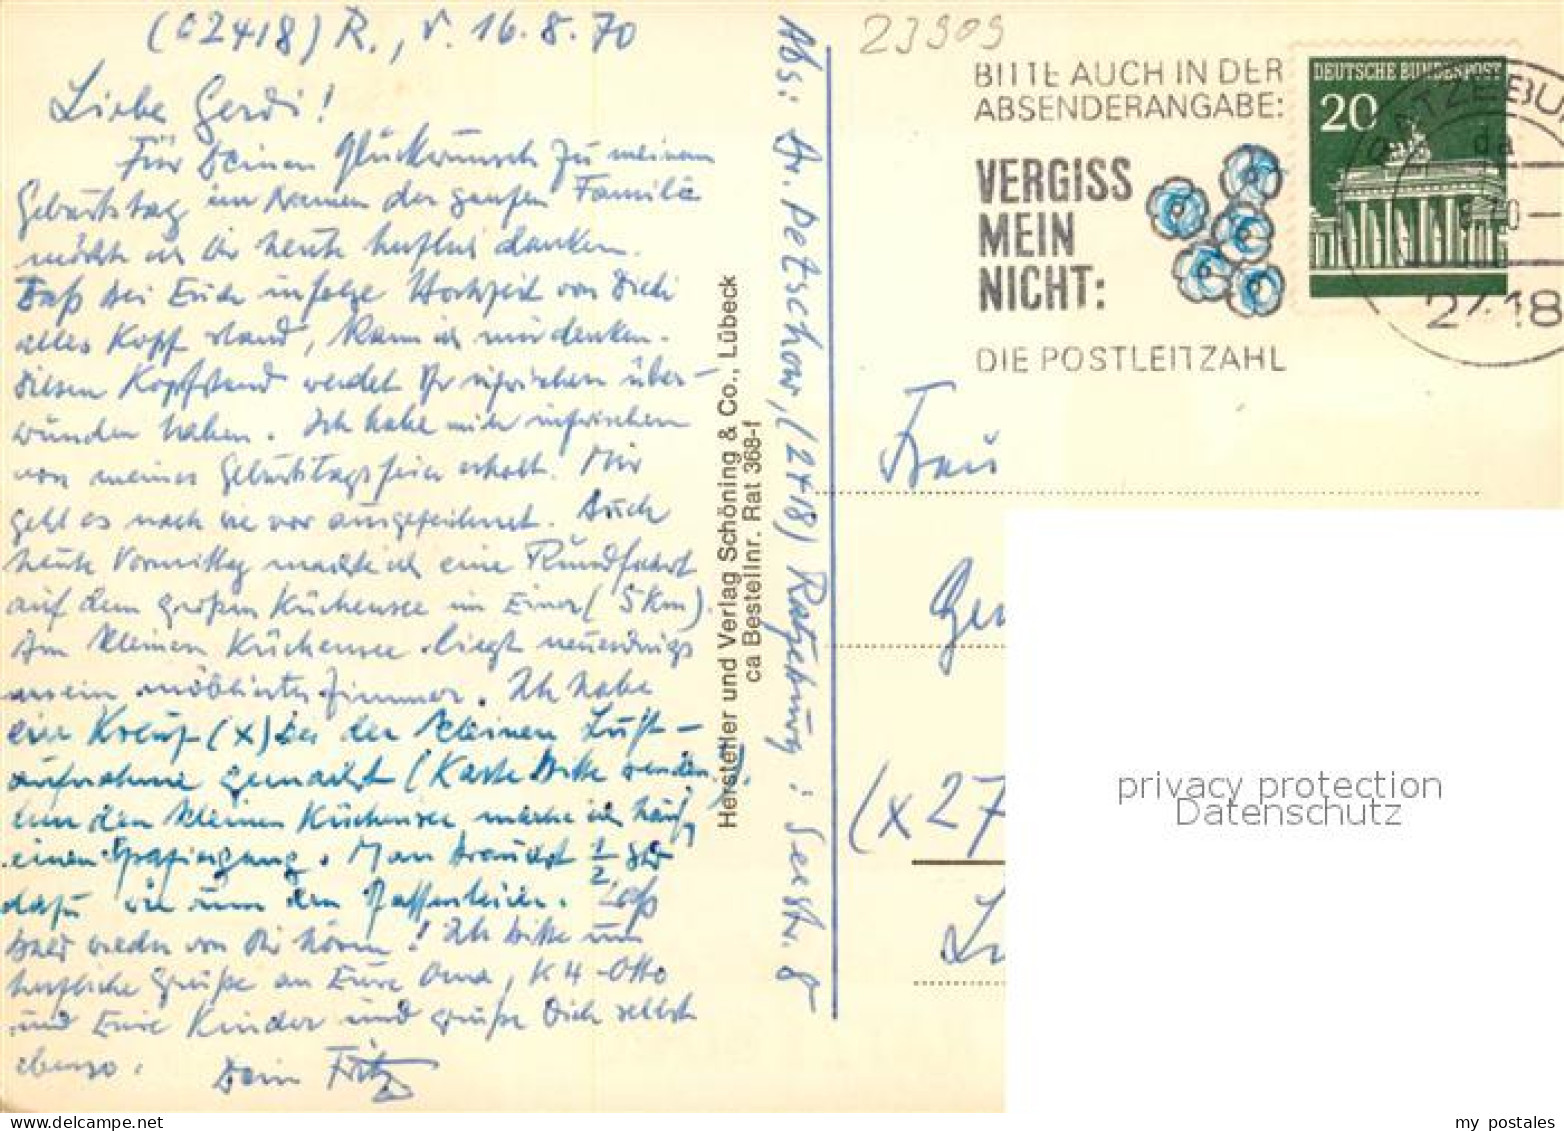 (02418) R., d. 16.8.70
Liebe Gerdi!
Für Deinen Glückwunsch zu meinem
Geburtstag im Namen der ganzen Familie
möchte ich Dir heute herzlich danken.
Daß bei Euch infolge Hochzeit von Dieti
alles Kopf stand, kann ich mir denken.
Diesen Kopfstand werdet Ihr inzwischen über-
wunden haben. Ich habe mich inzwischen
von meiner Geburtstagsfeier erholt. Mir
geht es nach wie vor ausgezeichnet. Auch
heute Vormittag machte ich eine Rundfahrt
auf dem großen Küchensee im Einer (5 km).
Am kleinen Küchensee liegt neuerdings
mein möbliertes Zimmer. Ich habe
ein Kreuz (x) bei der kleinen Luft-
aufnahme gemacht (Karte bitte wenden!).
Um den kleinen Küchensee mache ich häufig
einen Spaziergang. Man braucht 1/2 Std
dazu wie um den
bald wieder von Dir hören! Ich bitte um
herzliche Grüße an Eure Oma, K4-Otto
und Eure Kinder und grüße Dich selbst
ebenso. Dein Fritz
Hersteller und Verlag Schöning & Co., Lübeck
ca Bestellnr. Rat 368-f
Abs: Dr. Petschow, (2418) Ratzeburg: Seestr. 8
23909
BITTE AUCH IN DER
ABSENDERANGABE:
VERGISS
MEIN
NICHT:
DIE POSTLEITZAHL
DEUTSCHE BUNDESPOST
20
RATZEBU
da
2418
Frau
Ger
(x 27
privacy protection
Datenschutz
my postales